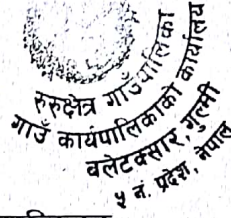 रुरुक्षेत्र गाउँपालिका
गाउँ कार्यपालिकाको कार्यालय
वलेटक्सार, गुल्मी
५ नं. प्रदेश, नेपाल